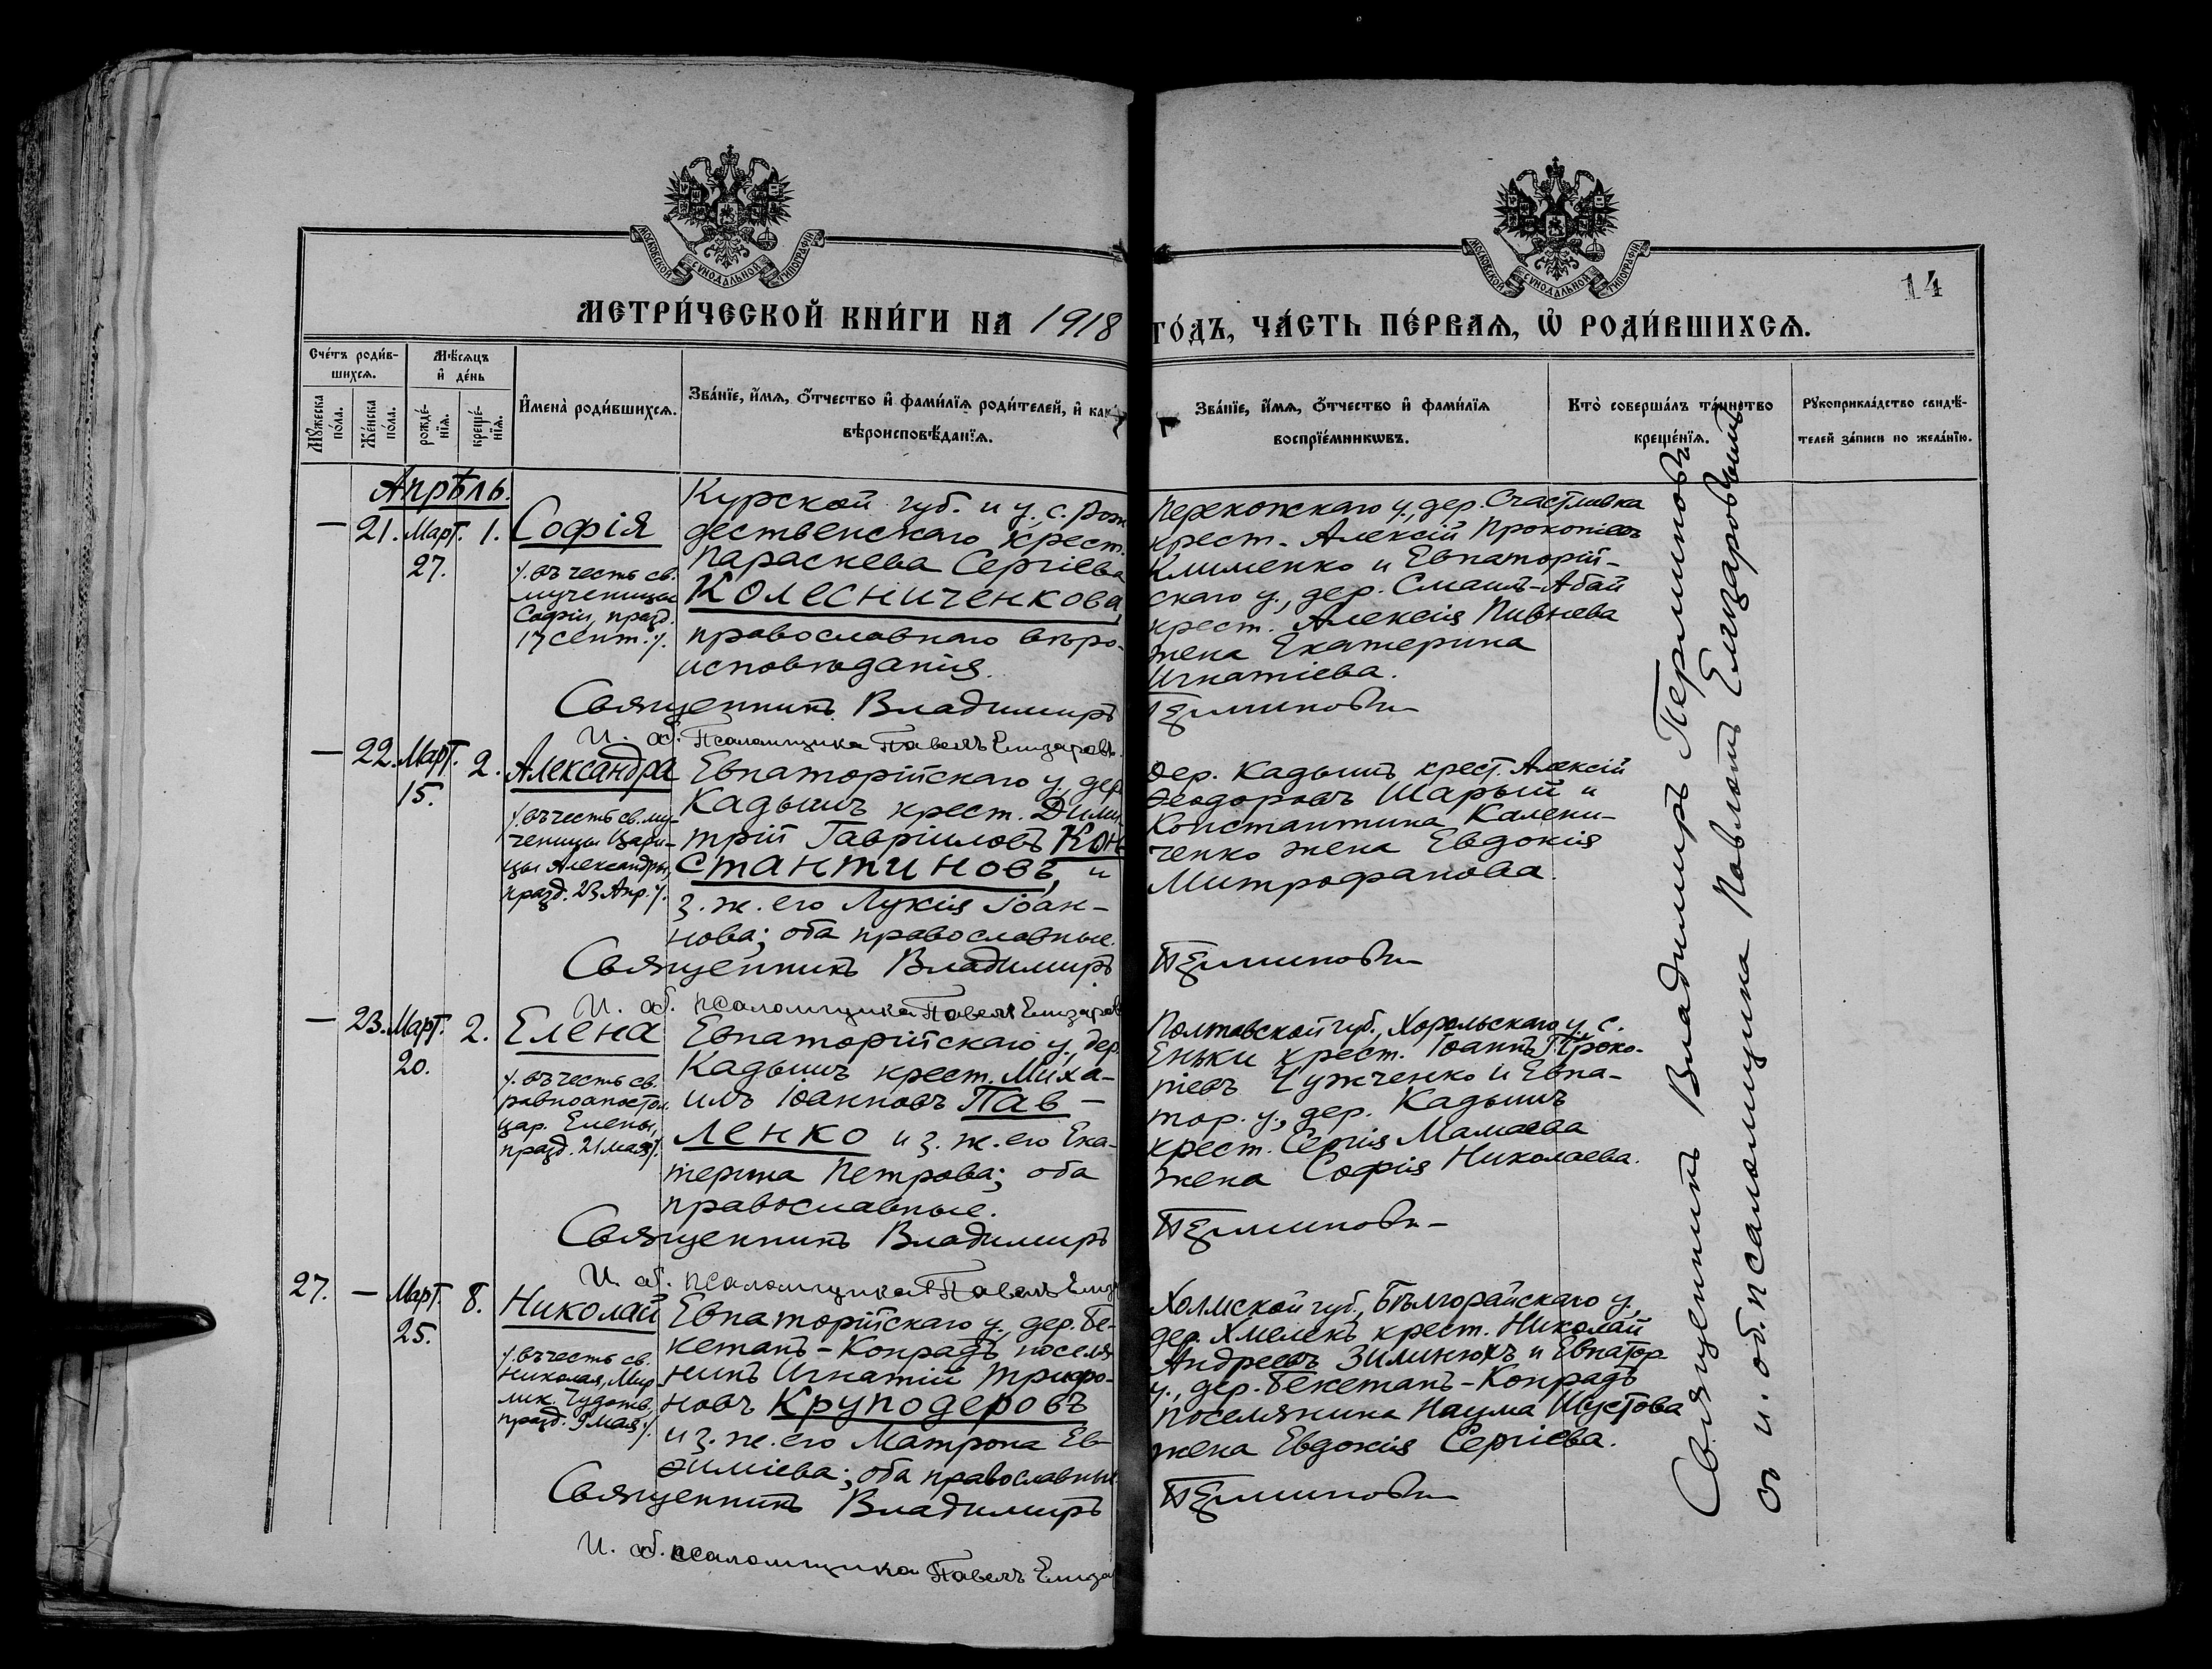 МОСКОВСКОЙ СѴНОДАЛЬНОЙ ТИПОГРАФІИ
МОСКОВСКОЙ СѴНОДАЛЬНОЙ ТИПОГРАФІИ
14
МЕТРИ́ЧЕСКОЙ КНИ́ГИ НА 1918 ГО́ДЪ, ЧА́СТЬ ПЕ́РВАѦ, Ѡ҆ РОДИ́ВШИХСѦ.
Сче́тъ роди́в-
шихсѧ.
Мѣ́сѧцъ
и҆ де́нь
Мꙋ́жеска
по́ла.
Же́нска
по́ла.
рожде́-
нїѧ.
креще́-
нїѧ.
И҆мена̀ роди́вшихсѧ.
Зва́нїе, и҆́мѧ, ѻ҆́тчество и҆ фами́лїѧ роди́телей, и҆ как
вѣроисповѣ́данїѧ.
Зва́нїе, и҆́мѧ, ѻ҆́тчество и҆ фами́лїѧ
воспрїе́мникѡвъ.
Кто̀ соверша́лъ та́инство
креще́нїѧ.
Рꙋкоприкла́дство свидѣ́-
телей за́писи по жела́нїю.
Апрѣль.
— 21. Март. 27. 1.
Софія
/. въ честь св.
мученицы
Софіи, празд.
17 сент. /.
Курской губ. и у., с. Рож
дественскаго крест.
Параскева Сергіева
Колесниченкова,
православнаго вѣро-
исповѣданія.
Перекопскаго у., дер. Счастливка
крест. Алексій Прокопіевъ
Клименко и Евпаторій-
скаго у., дер. Смаилъ-Абай
крест. Алексія Пивнева
жена Екатерина
Игнатіева.
Священникъ Владимиръ Перминовъ
И. об. Псаломщика Павелъ Елизаровъ.
— 22. Март. 15. 2.
Александра
/. въ честь св. му-
ченицы Цари-
цы Александры,
празд. 23 Апр. /.
Евпаторійскаго у., дер
Кадышъ крест. Дими-
трій Гавріиловъ Кон
стантиновъ, и
з. ж. его Лукія Іоан-
нова; оба православные.
дер. Кадышъ крест. Алексій
Ѳеодоровъ Шарый и
Константина Калени-
ченко жена Евдокія
Митрофанова.
Священникъ Владимиръ Перминовъ
И. об. псаломщика Павелъ Елизаров
— 23. Март. 20. 2.
Елена
/. въ честь св.
равноапостол.
цар. Елены,
празд. 21 мая /.
Евпаторійскаго у., дер.
Кадышъ крест. Миха-
илъ Іоанновъ Пав-
ленко и з. ж. его Ека-
терина Петрова; оба
православные.
Полтавской губ., Хорольскаго у., с.
Еньки крест. Іоаннъ Проко-
піевъ Чужченко и Евпа-
тор. у., дер. Кадышъ
крест. Сергія Мамаева
жена Софія Николаева.
Священникъ Владимиръ Перминовъ
И. об. псаломщика Павелъ Елиз
27. — Март. 25. 8.
Николай
/. въ честь св.
Николая, Мир-
лик. Чудотв.,
празд. 9 мая /.
Евпаторійскаго у., дер. Бе-
кетанъ-Конрадъ поселя
нинъ Игнатій Трифо-
новъ Круподеровъ
и з. ж. его Матрона Ев-
ѳиміева; оба православные
Холмской губ., Бѣлгорайскаго у.,
дер. Хмелекъ крест. Николай
Андреевъ Зилинюхъ и Евпатор.
у., дер. Бекетанъ-Конрадъ
поселянина Наума Шустова
жена Евдокія Сергіева.
Священникъ Владимиръ Перминовъ
И. об. псаломщика Павелъ Елиза
Священникъ Владимиръ Перминовъ
съ и. об. псаломщика Павломъ Елизаровымъ